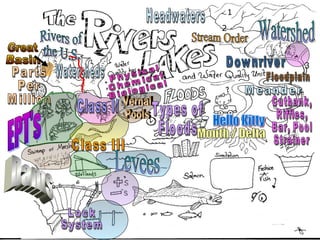 Headwaters
The
Rivers
Lakes
and Water Quality Unit
Stream Order
Watershed
Rivers of
the U.S.
Great
Basin
Watersheds
Water
Physical
Chemical
Biological
Downriver
Floodplain
Parts
Per
Million
FLOODS
Meander
Class V
Vernal
Pools
Types of
Floods
Hello Kitty
Mouth / Delta
Cutbank,
Riffles,
Bar, Pool
Strainer
EPT's
Class III
Dams
Levees
Wetlands
+'s
-'s
Salmon
Fish
Lock
System